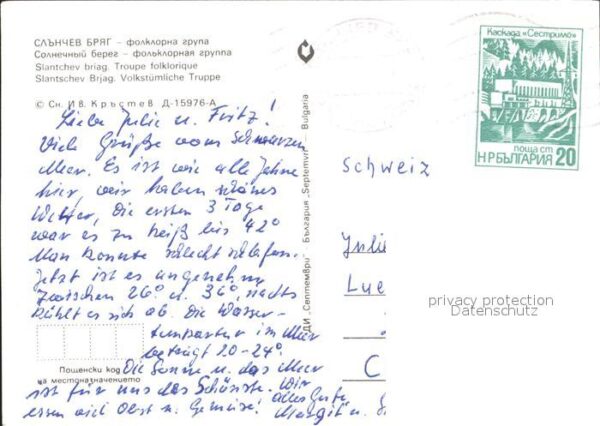 СЛЪНЧЕВ БРЯГ – фолклорна група
Солнечный берег – фольклорная группа
Slantchev briag. Troupe folklorique
Slantschev Brjag. Volkstümliche Truppe
© Сн. Ив. Кръстев Д-15976-А
Liebe Julie u. Fritz!
Viele Grüße vom Schwarzen
Meer. Es ist wie alle Jahre
hier, wir haben schönes
Wetter, die ersten 3 Tage
war es zu heiß bis 42°
Man konnte schlecht schlafen.
Jetzt ist es angenehm
zwischen 26° u. 36°, nachts
kühlt es sich ab. Die Wasser-
temperatur im Meer
beträgt 20-24°.
Die Sonne u. das Meer
ist für uns das Schönste. Wir
essen viel Obst u. Gemüse!
Alles Gute
Margit u.
Пощенски код
на местоназначението
ДИ „Септември" България „Septemvri" Bulgaria
Каскада „Сестримо"
поща ст
НР БЪЛГАРИЯ 20
Schweiz
Julie
Luz
C
privacy protection
Datenschutz